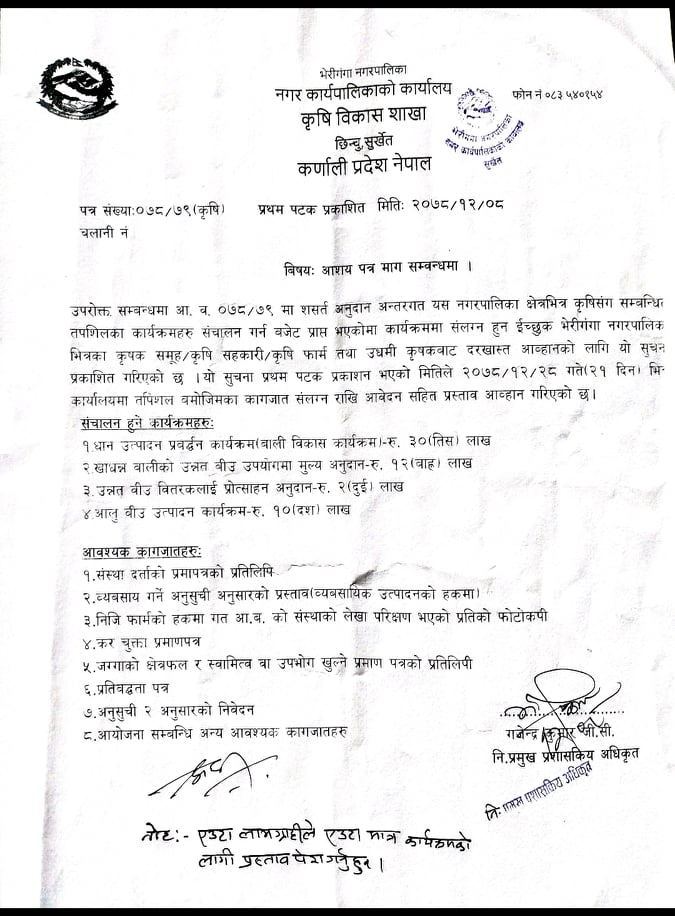 भेरीगंगा नगरपालिका
नगर कार्यपालिकाको कार्यालय
कृषि विकास शाखा
छिन्चु,सुर्खेत
कर्णाली प्रदेश नेपाल
फोन नं ०८३ ५४०१५४
भेरीगंगा नगरपालिका
नगर कार्यपालिकाको कार्यालय
सुर्खेत
पत्र संख्या:०७८/७९(कृषि) प्रथम पटक प्रकाशित मितिः २०७८/१२/०८
चलानी नं
बिषयः आशय पत्र माग सम्बन्धमा ।
उपरोक्त सम्बन्धमा आ. व. ०७८/७९ मा शसर्त अनुदान अन्तरगत यस नगरपालिका क्षेत्रभित्र कृषिसंग सम्बन्धित
तपशिलका कार्यक्रमहरु संचालन गर्न बजेट प्राप्त भएकोमा कार्यक्रममा संलग्न हुन ईच्छुक भेरीगंगा नगरपालिका
भित्रका कृषक समूह/कृषि सहकारी/कृषि फार्म तथा उधमी कृषकवाट दरखास्त आव्हानको लागि यो सुचना
प्रकाशित गरिएको छ ।यो सुचना प्रथम पटक प्रकाशन भएको मितिले २०७८/१२/२८ गते(२१ दिन) भि
कार्यालयमा तपिशल वमोजिमका कागजात संलग्न राखि आवेदन सहित प्रस्ताव आव्हान गरिएको छ।
संचालन हुने कार्यक्रमहरुः
१.धान उत्पादन प्रवर्द्धन कार्यक्रम(वाली विकास कार्यक्रम)-रु. ३०(तिस) लाख
२.खाधन्न वालीको उन्नत बीउ उपयोगमा मुल्य अनुदान-रु. १२(वाह्र) लाख
३. उन्नत वीउ वितरकलाई प्रोत्साहन अनुदान-रु. २(दुई) लाख
४.आलु वीउ उत्पादन कार्यक्रम-रु. १०(दश) लाख
आवश्यक कागजातहरुः
१.संस्था दर्ताको प्रमापत्रको प्रतिलिपि
२.व्यबसाय गर्ने अनुसुची अनुसारको प्रस्ताव(व्यबसायिक उत्पादनको हकमा)
३.निजि फार्मको हकमा गत आ.ब. को संस्थाको लेखा परिक्षण भएको प्रतिको फोटोकपी
४.कर चुक्ता प्रमाणपत्र
५.जग्गाको क्षेत्रफल र स्वामित्व वा उपभोग खुल्ने प्रमाण पत्रको प्रतिलिपी
६.प्रतिवद्धता पत्र
७.अनुसुची २ अनुसारको निवेदन
८.आयोजना सम्बन्धि अन्य आवश्यक कागजातहरु
गजेन्द्र कुमार जी.सी.
नि.प्रमुख प्रशासकिय अधिकृत
नि. प्रमुख प्रशासकीय अधिकृत
नोटः- एउटा लाभग्राहीले एउटा मात्र कार्यक्रमको
लागी प्रस्ताव पेश गर्नु हुन ।